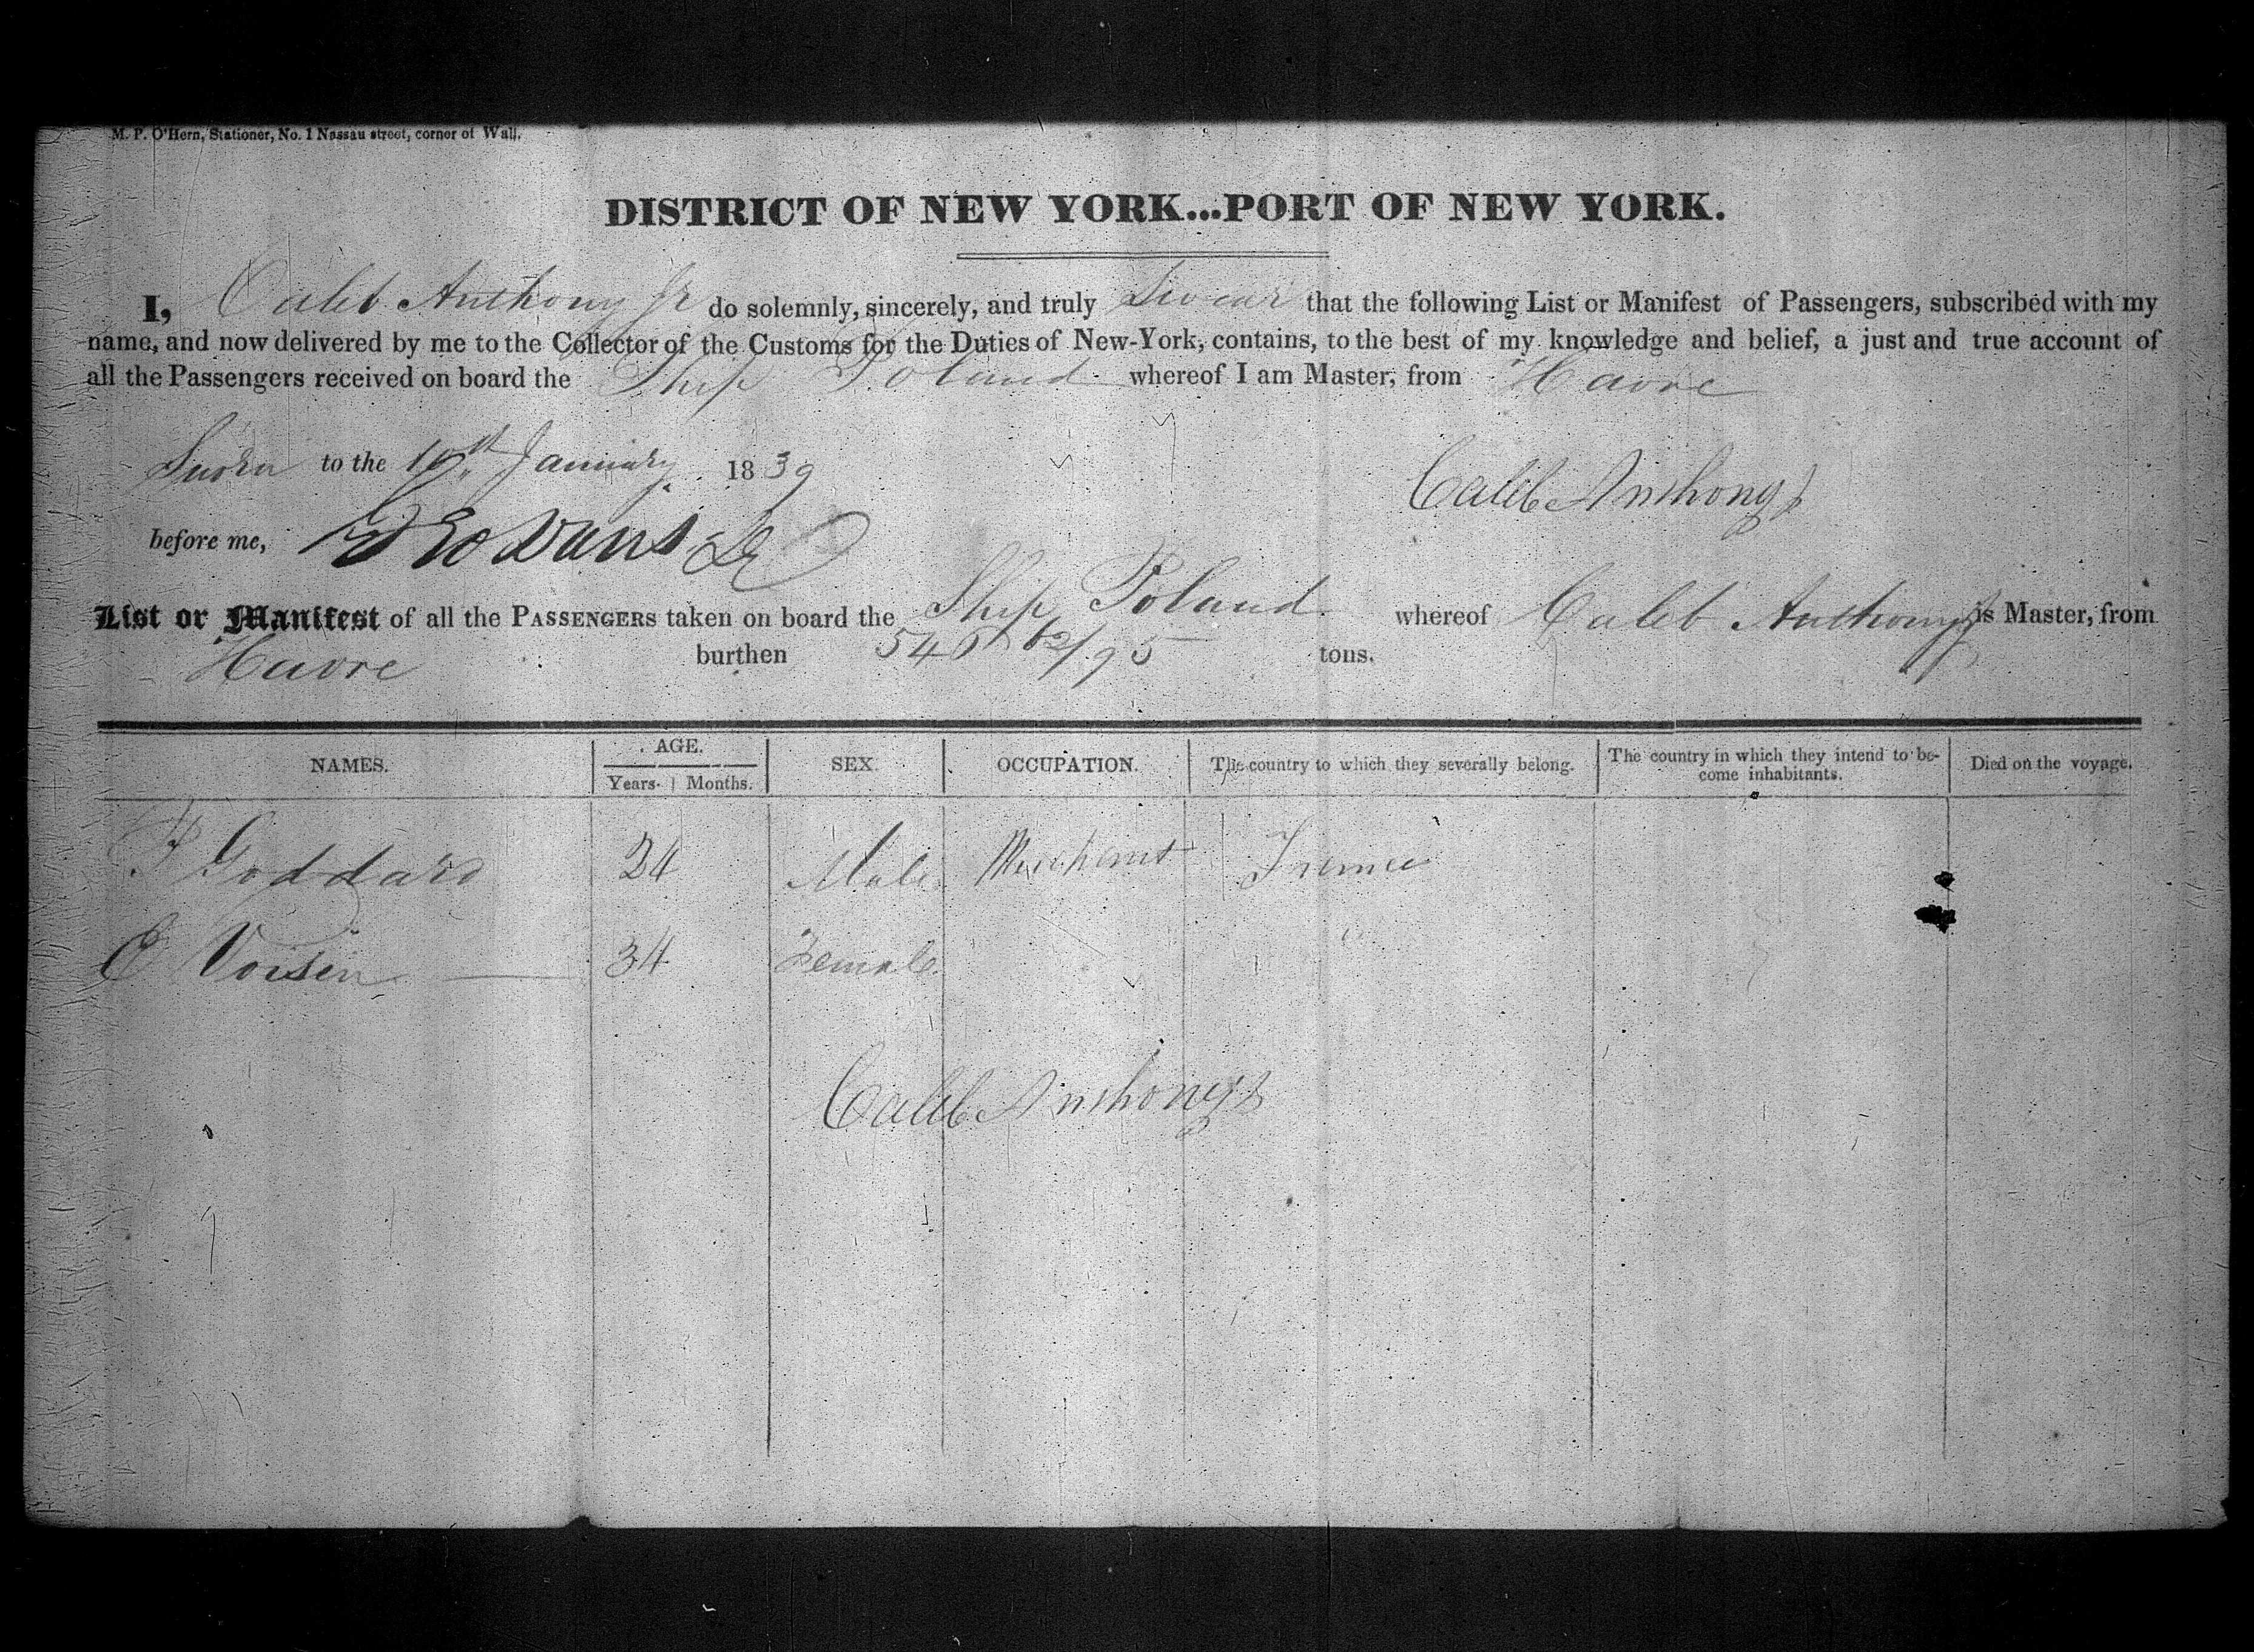 M. P. O'Hern, Stationer, No. 1 Nassau street, corner of Wall.
DISTRICT OF NEW YORK...PORT OF NEW YORK.
I, Caleb Anthony Jr do solemnly, sincerely, and truly Swear that the following List or Manifest of Passengers, subscribed with my
name, and now delivered by me to the Collector of the Customs for the Duties of New-York, contains, to the best of my knowledge and belief, a just and true account of
all the Passengers received on board the Ship Poland whereof I am Master, from Havre
Sworn to the January 1839
Caleb Anthony Jr
before me,
List or Manifest of all the PASSENGERS taken on board the Ship Poland whereof Caleb Anthony Jr is Master, from
Havre burthen 546 62/95 tons.
NAMES. AGE. SEX. OCCUPATION. The country to which they severally belong. The country in which they intend to be- Died on the voyage.
Years. Months. come inhabitants.
Goddard 24 Male Merchant France
E Voisin 34 Female "
Caleb Anthony Jr